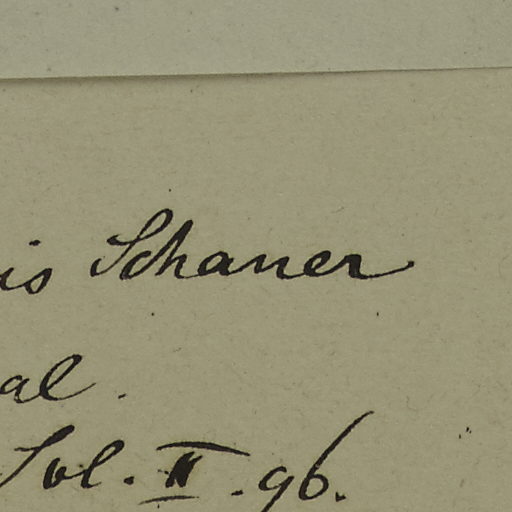 is Schauer
al.
Sol. II. 96.